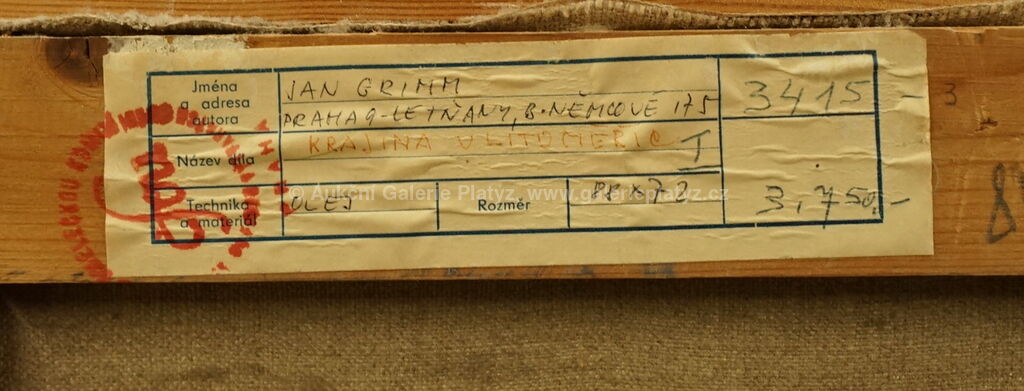 Jména
a adresa
autora
JAN GRIMM
PRAHA 9-LETŇANY, B. NĚMCOVÉ 175
3415-
3
Název díla
KRAJINA U LITOMĚŘIC I
© Aukční Galerie Platýz, www.galerieplatyz.cz
Technika
a materiál
OLEJ
Rozměr
×72
3.750,-
8